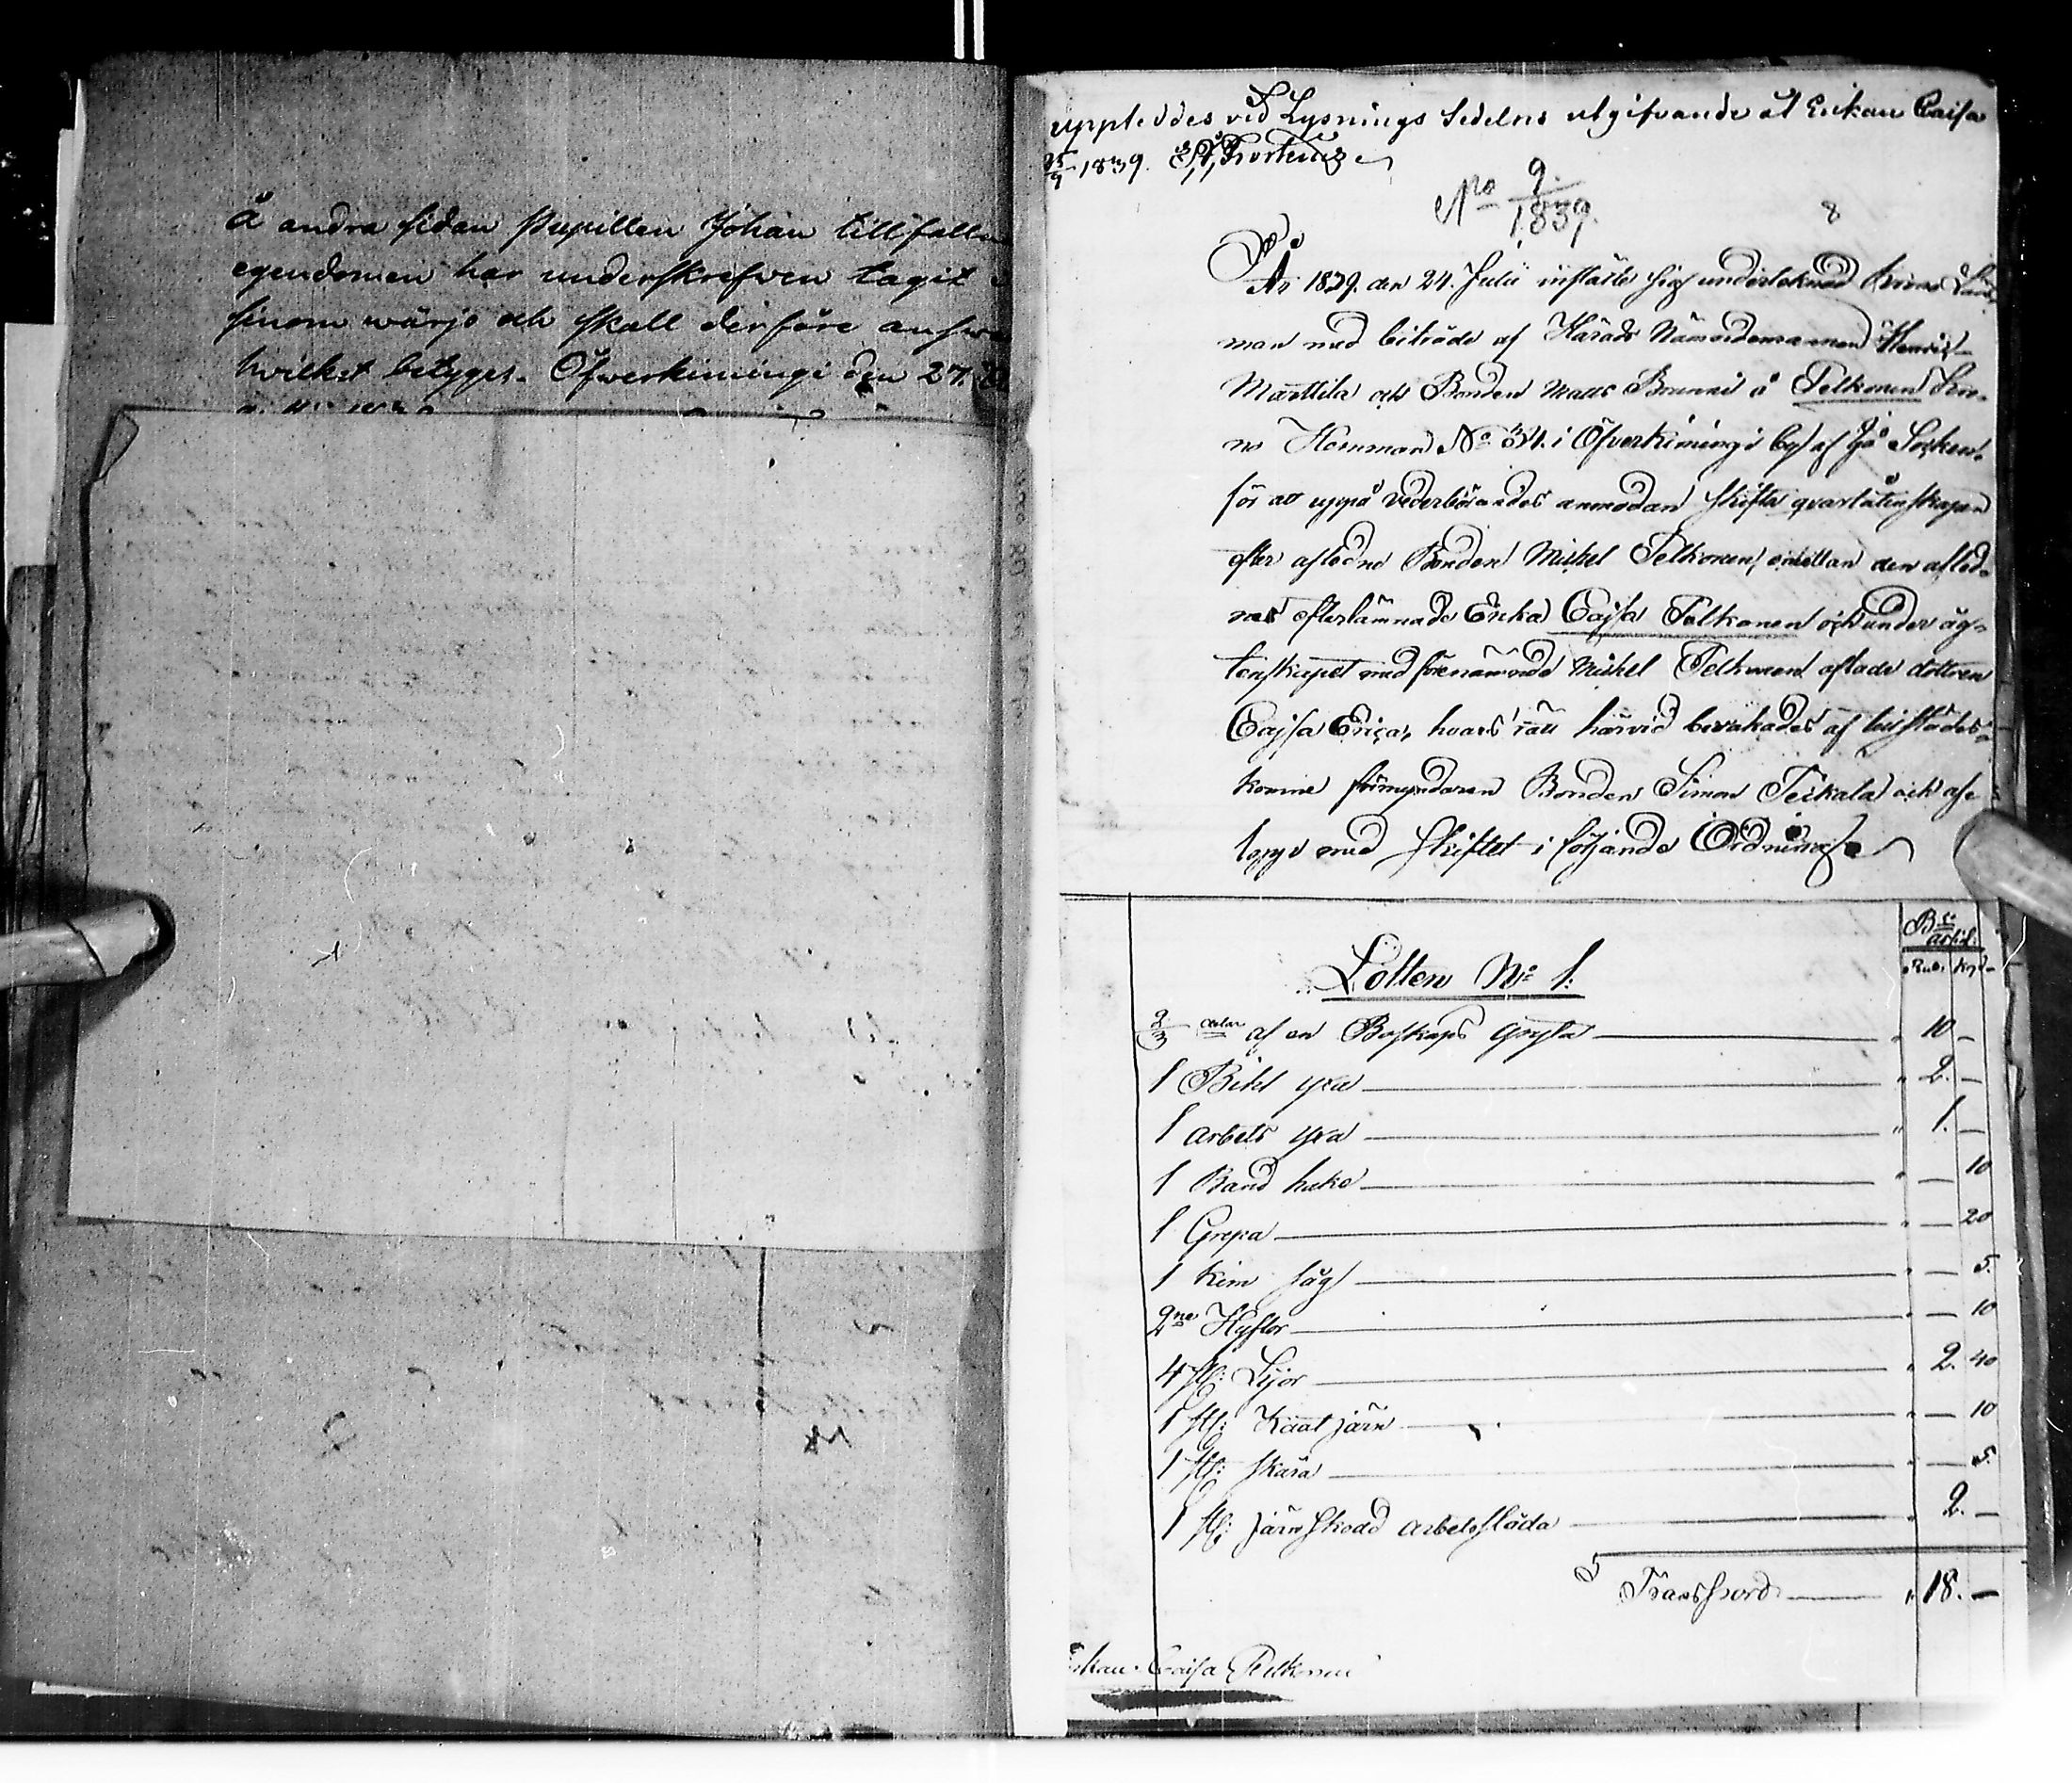 å andra sidan Pupillen Johan tillfalln
egendomen har underskrefven tagit
sinom wärjo och skall derföre answa
hvilket betyges. Öfwerkimingi den 27.
uppteddes vid Lysnings Sedelns utgifvande åt Enkan Caisa
25/9 1839.
No 9./1839.
8
År 1839. den 24. Julii inställe sig underteknad Krono Läns
man med biträde af Härads Nämndemannen Henrik
Marttila och Bonden Mats Brunni å Pelkonen Kro-
no Hemman No 34. i Öfverkimingi by af Ijå Socken.
för att uppå vederbörandes anmodan skifta qvarlåtenskapen
efter aflidne Bonden Michel Pelkonen, emellan den aflid-
nes efterlämnade Enka Cajsa Pelkonen och under äg-
tenskapet med förenämnde Michel Pelkonen aflade dottren
Cajsa Erica, hvars rätt härvid bevakades af tillstädes-
komne förmyndaren Bonden Simon Teikala och af-
lopp med skiftet i följande Ordning
Bco assig:
Rub. Kop.
Lotten No 1.
2/3 delar af en Boskaps Gryta " 10 -
1 Bihl yxa " 2. -
1 arbets yxa " 1. -
1 Band hake " - 10
1 Grepa " - 20
1 Kim såg " - 5.
2ne Hyflor " - 10
4 st: Lijor " 2. 40
1 st: Kaat järn " - 10
1 st: skära " - 5.
1 st: järn skodd arbetssläda " 2. -
Transport " 18. -
Enkan Caisa Pelkonen